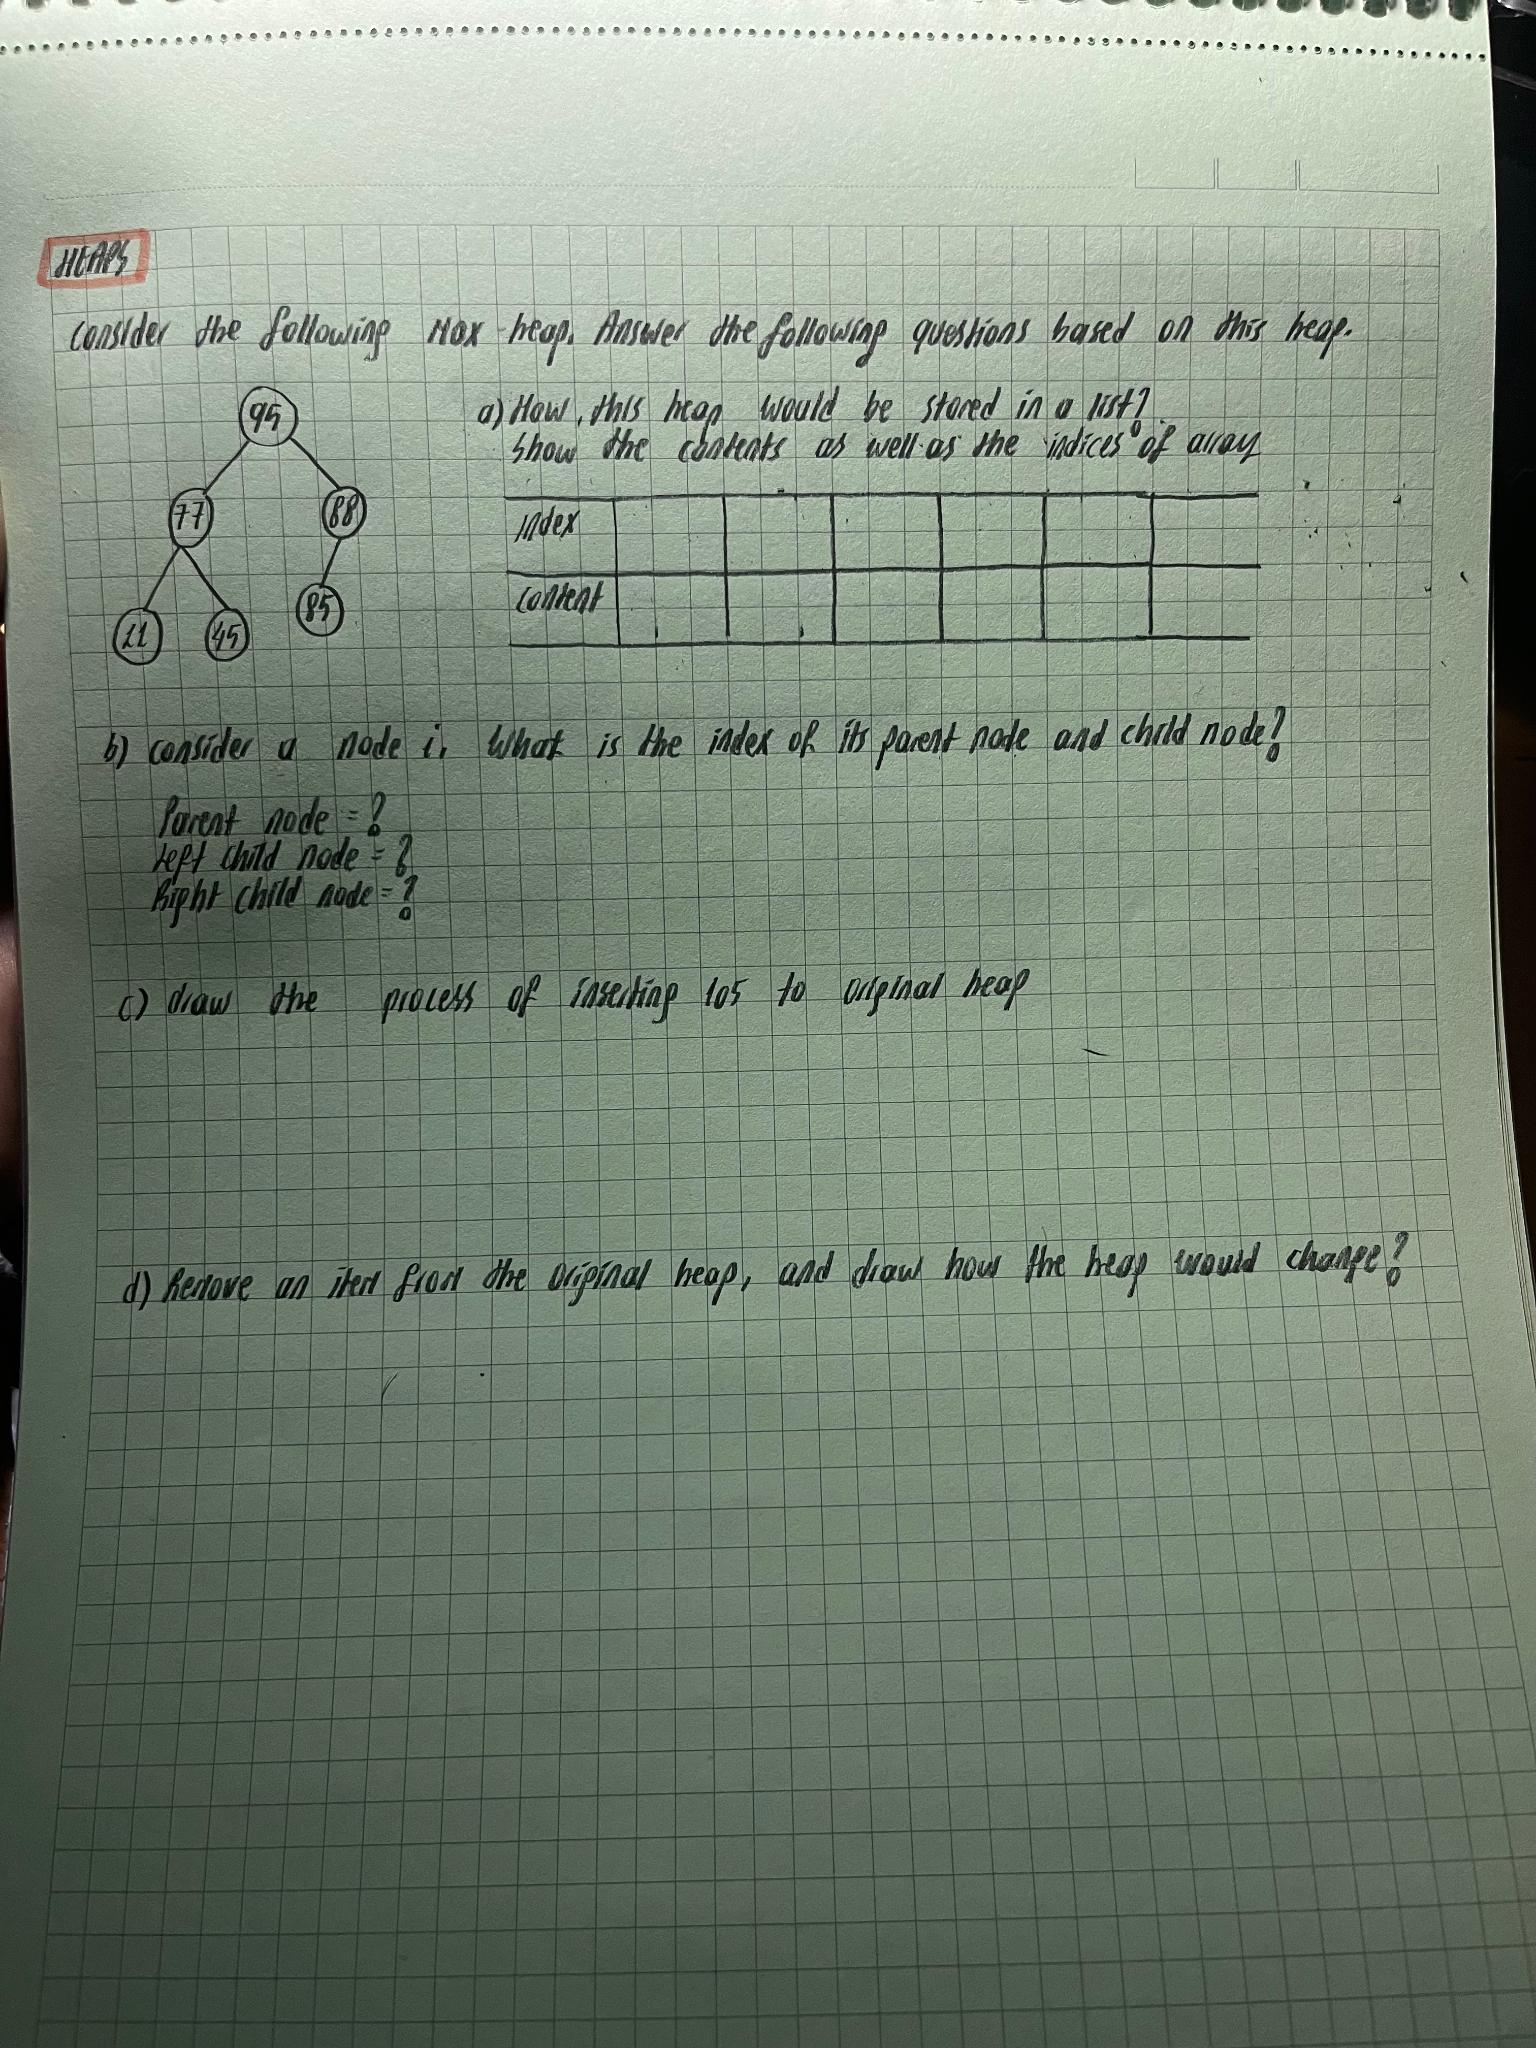 HEAPS
Consider the following Max heap. Answer the following questions based on this heap.
95
77
88
11
45
85
a) How, this heap would be stored in a list?
Show the contents as well as the indices of array
index
content
b) consider a node i, What is the index of its parent node and child node?
Parent node = ?
Left child node = ?
Right child node = ?
c) draw the process of inserting 105 to original heap
d) Remove an item from the original heap, and draw how the heap would change?